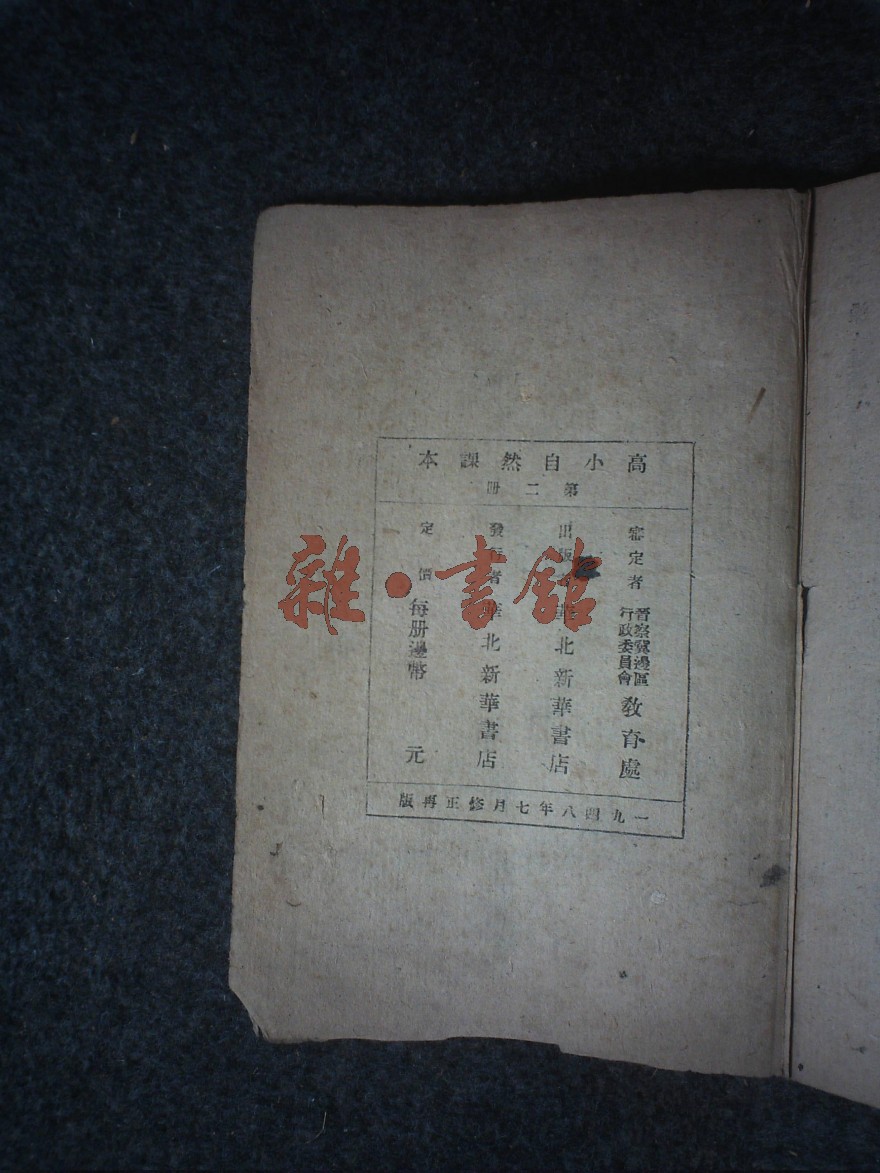 高小自然課本
第二冊
審定者 晋察冀邊區行政委員會 教育處
出版者 華北新華書店
發行者 華北新華書店
定價 每册邊幣 元
一九四八年七月修正再版
雜·書館